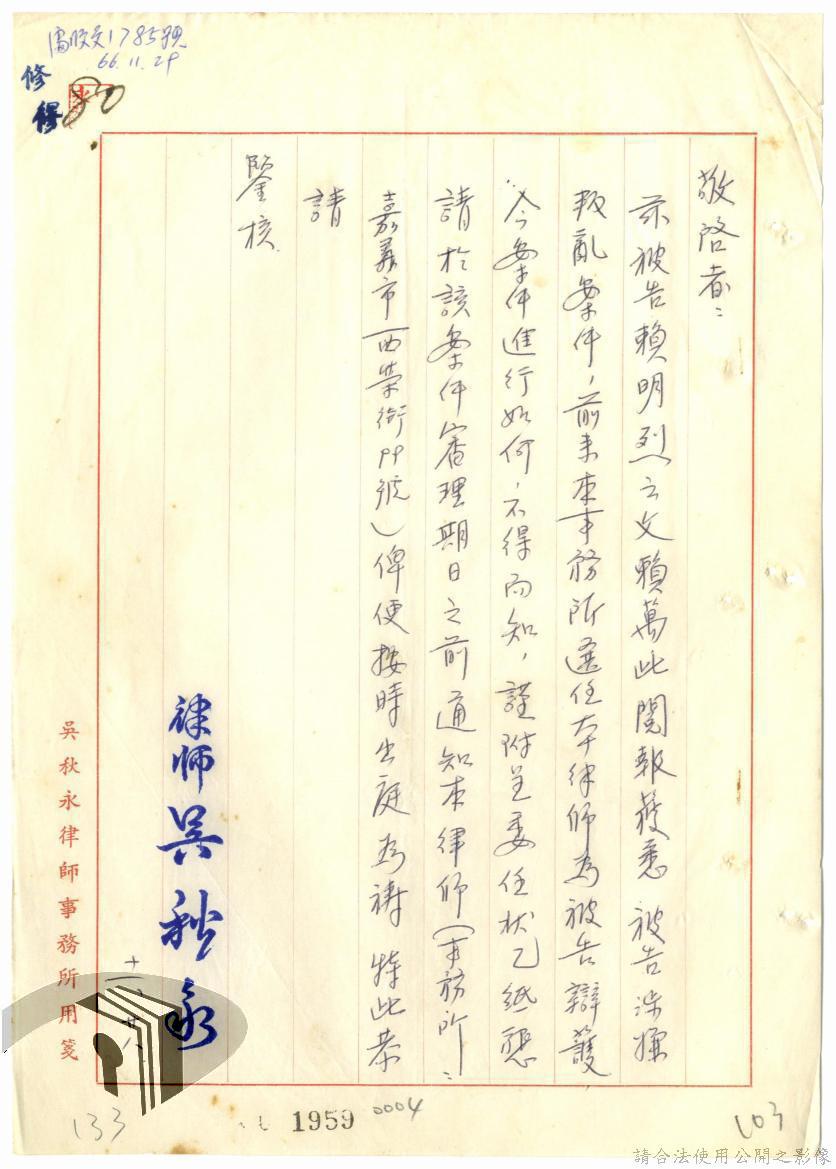 66.11.29
敬啓者：
茲被告賴明烈之父賴萬此閱報獲悉被告涉嫌
叛亂案件，前來本事務所選任本律師為被告辯護，
今案件進行如何，不得而知，謹附呈委任狀乙紙懇
請於該案件審理期日之前通知本律師（事務所：
嘉義市西榮街99號）俾便按時出庭為禱 特此恭
請
鑒核
律師 吳秋永
十一、廿八
吳秋永律師事務所用箋
133
1959
0004
103
請合法使用公開之影像